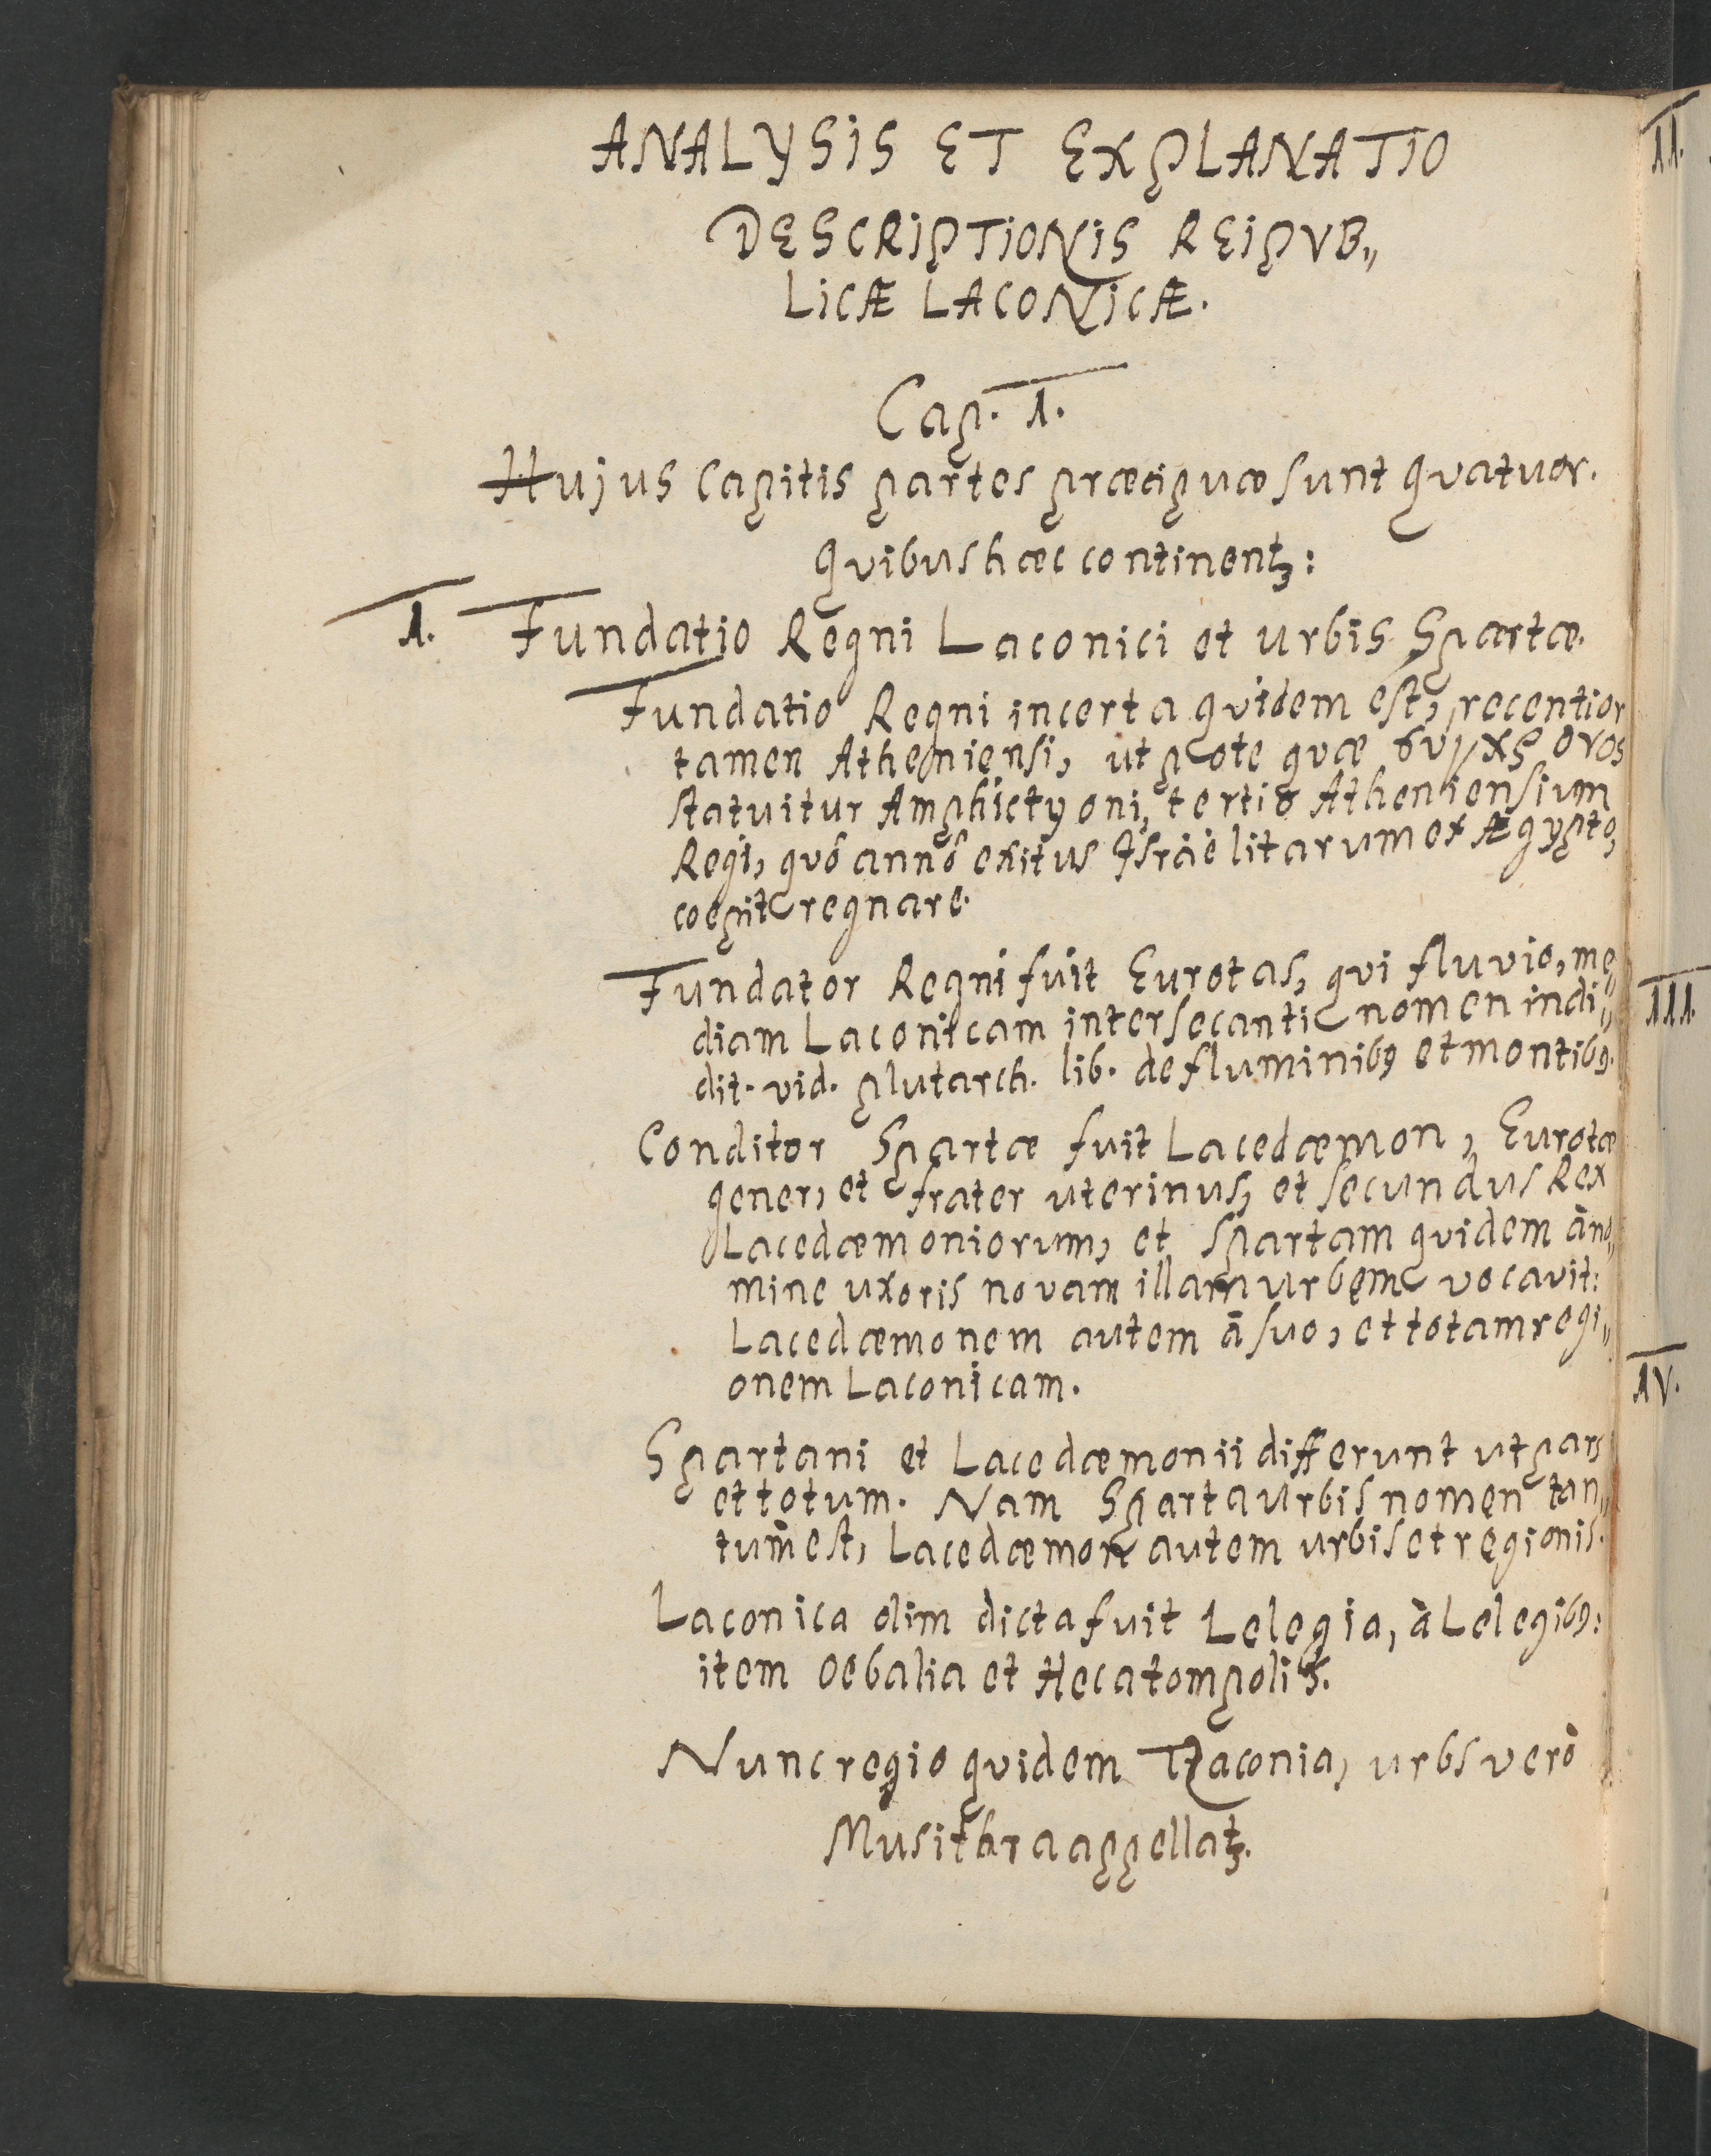 ANALYSIS ET EXPLANATIO
DESCRIPTIONIS REIPVB„
LICÆ LACONICÆ.
Cap. I.
Hujus Capitis partes præcipuæ sunt qvatuor.
Qvibus hæc continentꝫ:
I. Fundatio Regni Laconici et urbis Spartæ.
Fundatio Regni incerta qvidem est, recentior
tamen Atheniensi, utpote qvæ
statuitur Amphictyoni, tertio Atheniensium
Regi, qvo anno exitus Israëlitarum ex Ægypto,
coepit regnare.
Fundator Regni fuit Eurotas, qvi fluvio, me„
diam Laconicam intersecanti nomen indi„
dit. vid. plutarch. lib. de fluminibꝰ et montibꝰ.
Conditor Spartæ fuit Lacedæmon, Eurotæ
gener, et frater uterinus, et secundus Rex
Lacedæmoniorum, et Spartam qvidem à no„
mine uxoris novam illam urbem vocavit:
Lacedæmonem autem à suo, et totam regi„
onem Laconicam.
Spartani et Lacedæmonii differunt ut pars
et totum. Nam Sparta urbis nomen tan„
tum est, Lacedæmon autem urbis et regionis.
Laconica olim dicta fuit Lelegia, à Lelegibꝰ:
item Oebalia et Hecatompolis.
Nunc regio qvidem Tzaconia, urbs verò
Musithra appellatꝫ.
II.
III.
IV.